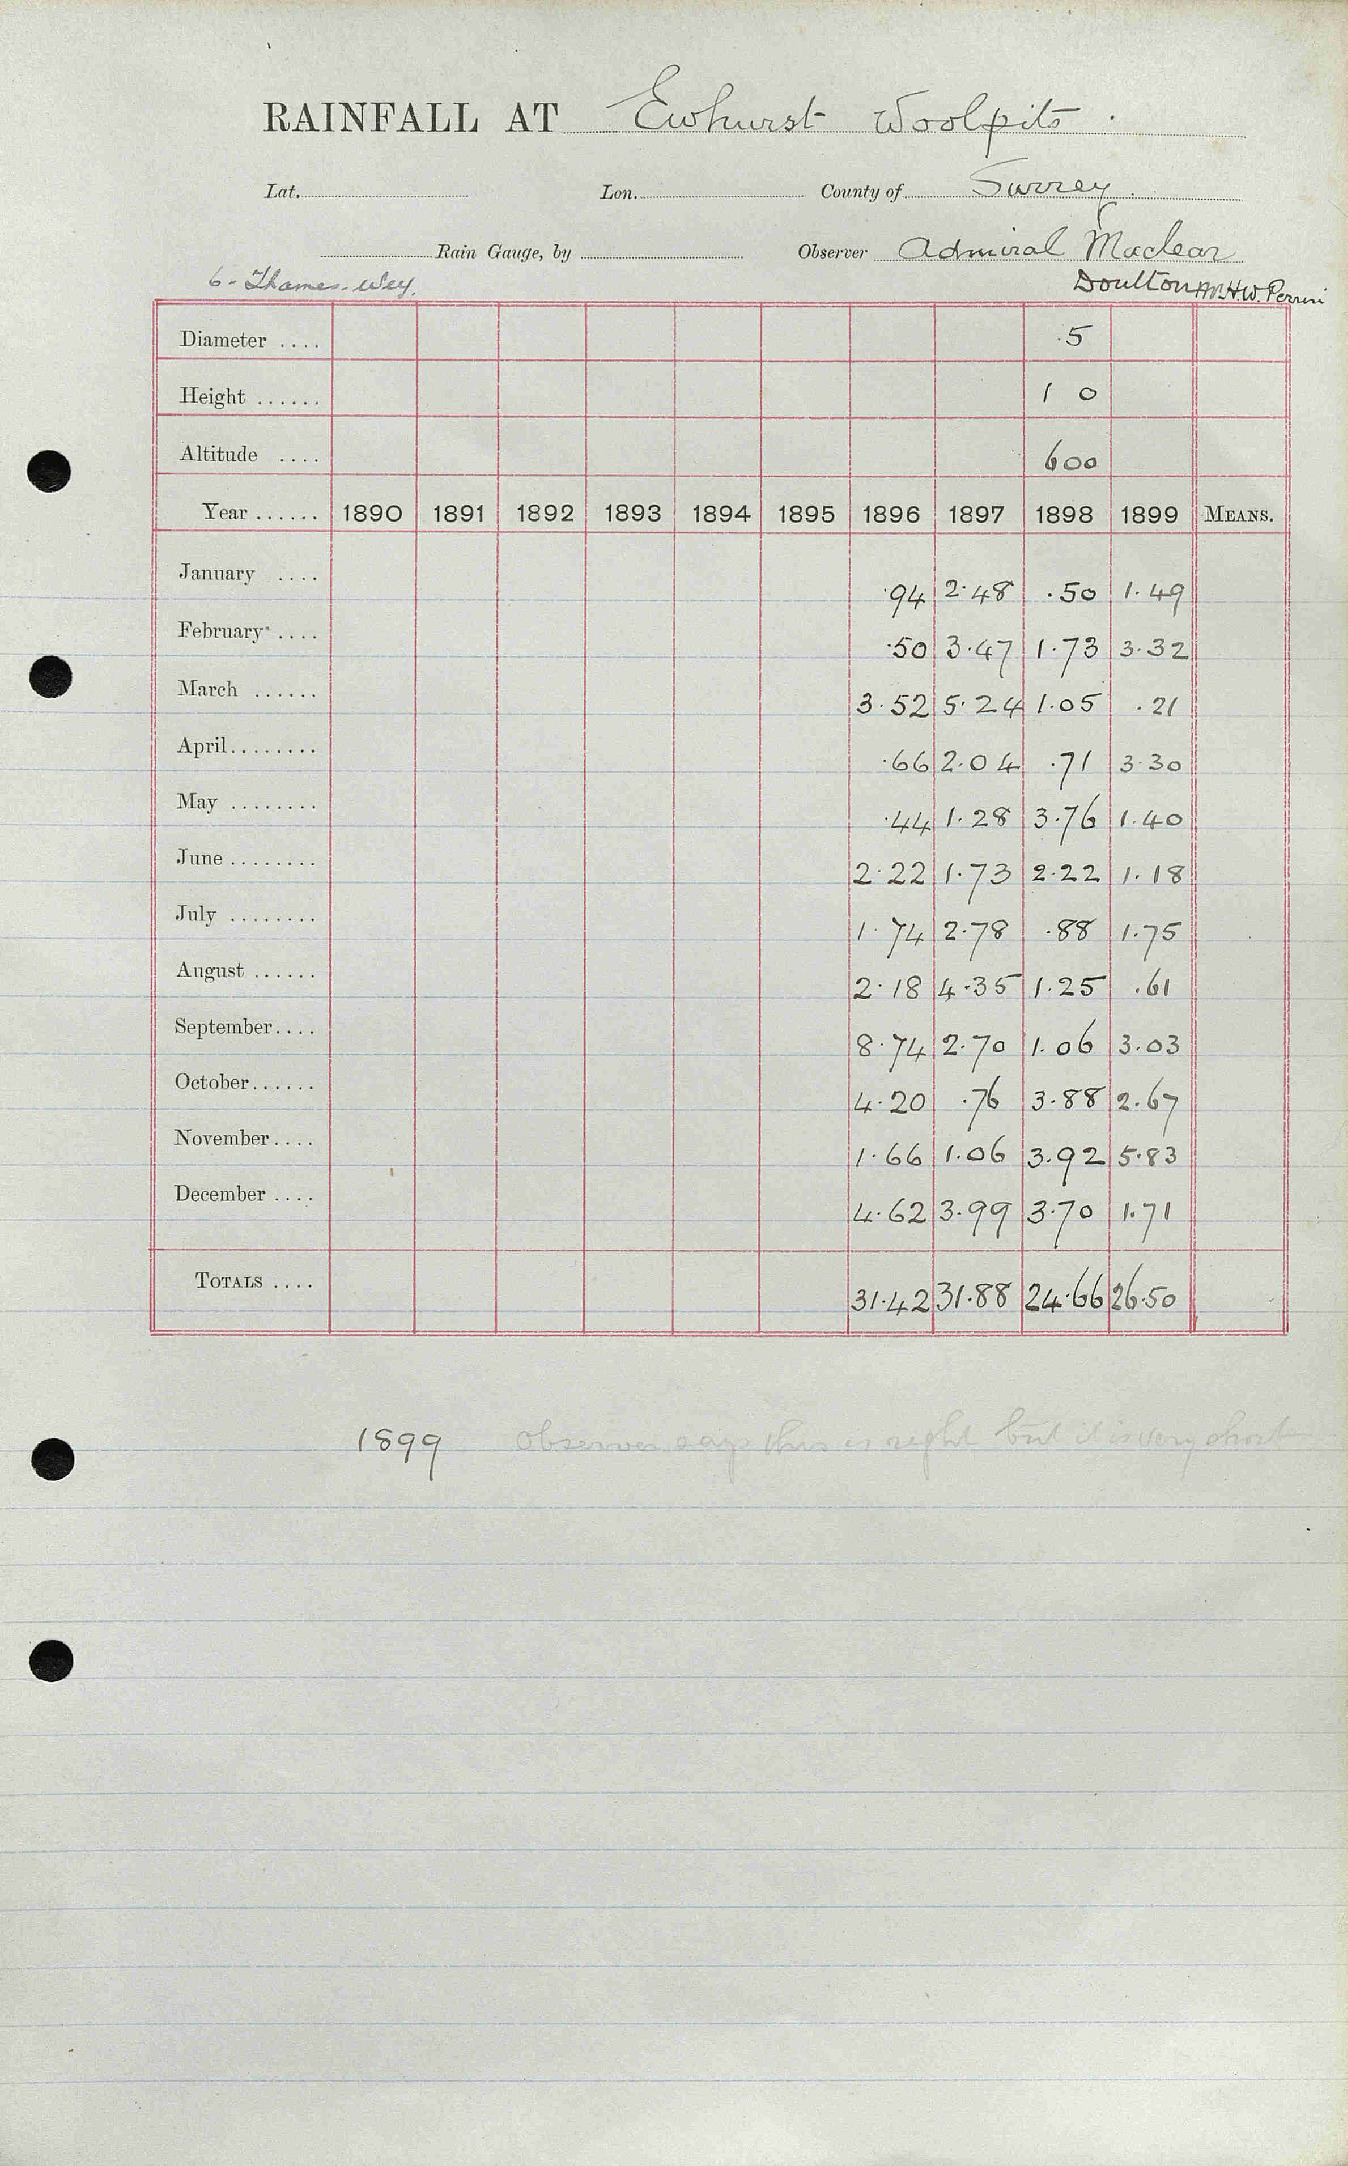 RAINFALL AT Ewhurst Woolpits.
Lat. Lon. County of Surrey.
Rain Gauge, by Observer Admiral Maclear
6 - Thames - Wey. Doulton H.W. Perrin
Diameter .... 5
Height ...... 1 0
Altitude .... 600
Year ...... 1890 1891 1892 1893 1894 1895 1896 1897 1898 1899 MEANS.
January .... .94 2.48 .50 1.49
February .... .50 3.47 1.73 3.32
March ...... 3.52 5.24 1.05 .21
April ........ .66 2.04 .71 3.30
May ........ .44 1.28 3.76 1.40
June ........ 2.22 1.73 2.22 1.18
July ........ 1.74 2.78 .88 1.75
August ...... 2.18 4.35 1.25 .61
September .... 8.74 2.70 1.06 3.03
October ...... 4.20 .76 3.88 2.67
November .... 1.66 1.06 3.92 5.83
December .... 4.62 3.99 3.70 1.71
TOTALS .... 31.42 31.88 24.66 26.50
1899 Observer says this is right but it very short